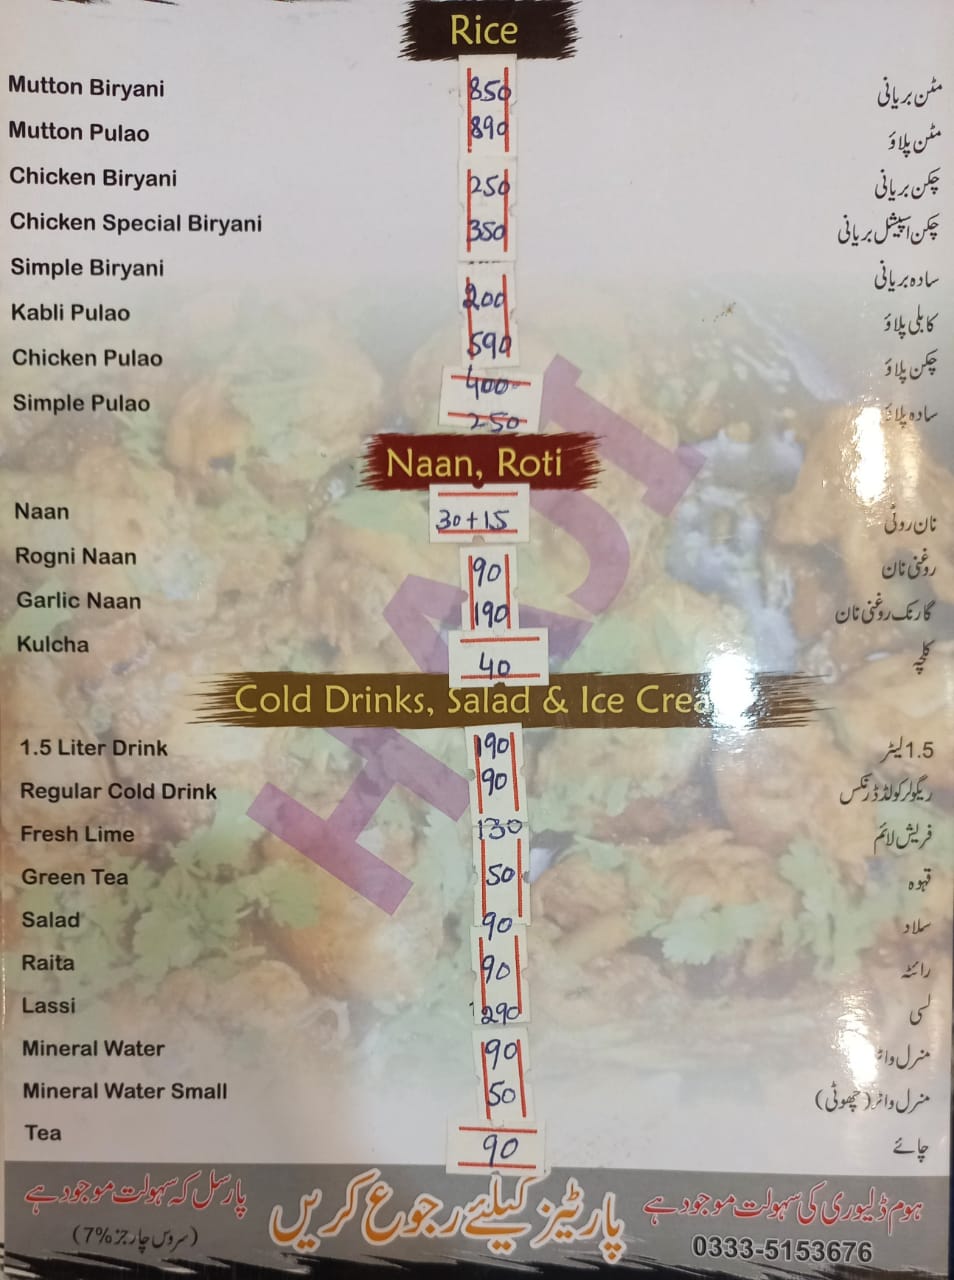 Rice
Mutton Biryani 850 مٹن بریانی
Mutton Pulao 890 مٹن پلاؤ
Chicken Biryani 250 چکن بریانی
Chicken Special Biryani 350 چکن اسپیشل بریانی
Simple Biryani 200 سادہ بریانی
Kabli Pulao 590 کابلی پلاؤ
Chicken Pulao 400 چکن پلاؤ
Simple Pulao 250 سادہ پلاؤ
Naan, Roti
Naan 30+15 نان روٹی
Rogni Naan 90 روغنی نان
Garlic Naan 190 گارلک روغنی نان
Kulcha 40 کلچہ
Cold Drinks, Salad & Ice Crea
1.5 Liter Drink 190 1.5 لیٹر
Regular Cold Drink 90 ریگولر کولڈ ڈرنکس
Fresh Lime 130 فریش لائم
Green Tea 50 قہوہ
Salad 90 سلاد
Raita 90 رائتہ
Lassi 290 لسی
Mineral Water 90 منرل واٹر
Mineral Water Small 50 منرل واٹر (چھوٹی)
Tea 90 چائے
HAJI
ہوم ڈلیوری کی سہولت موجود ہے
0333-5153676
پارٹیز کیلئے رجوع کریں
پارسل کہ سہولت موجود ہے
(سروس چارجز 7%)